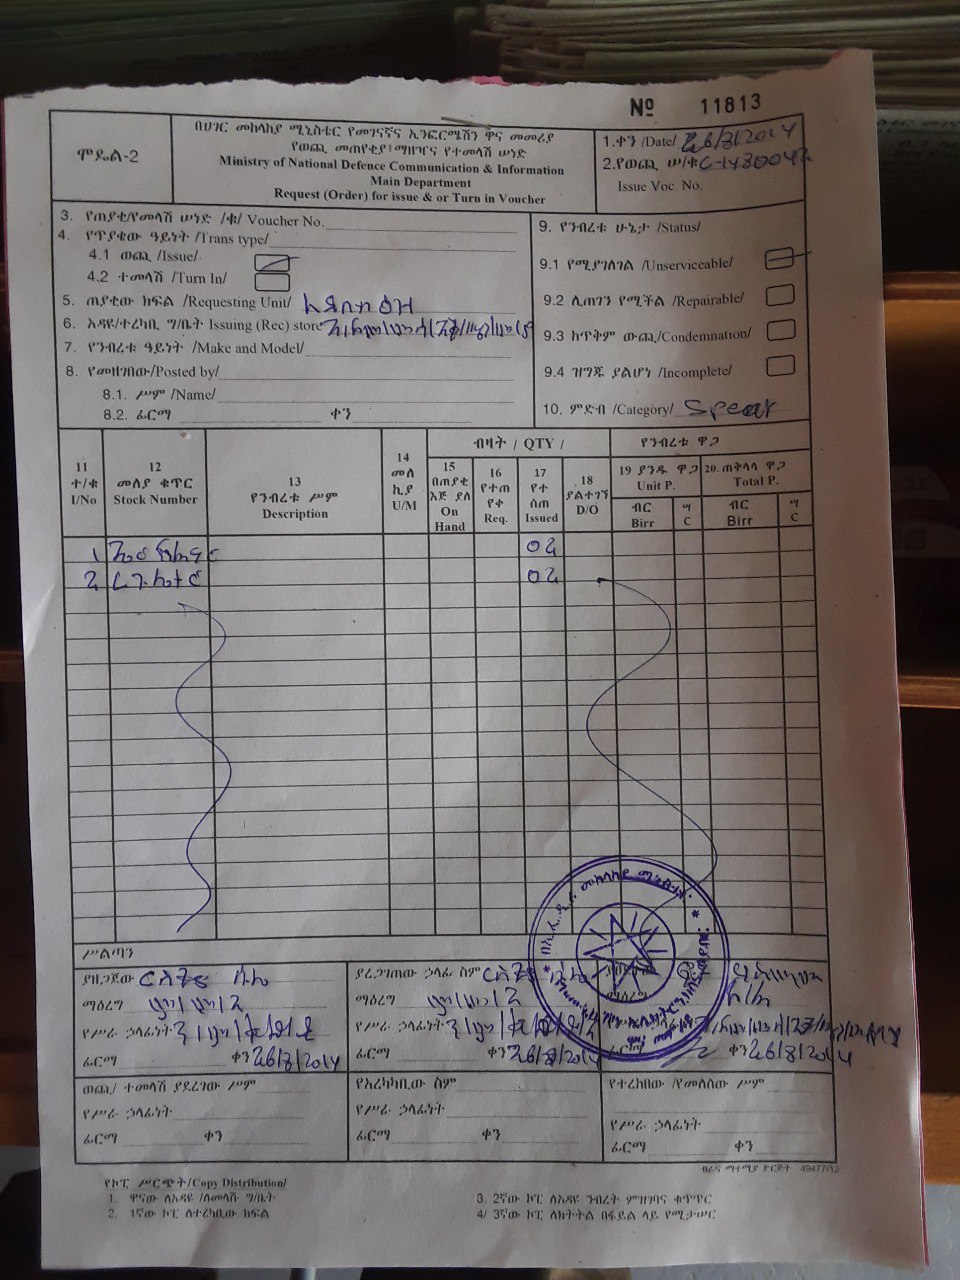 № 11813
ሞዴል-2
በሀገር መከላከያ ሚኒስቴር የመገናኛና ኢንፎርሜሽን ዋና መመሪያ
የወጪ መጠየቂያ፣ማዘዣና የተመላሽ ሠነድ
Ministry of National Defence Communication & Information
Main Department
Request (Order) for issue & or Turn in Voucher
1.ቀን /Date/ 26/8/2014
2.የወጪ ሠ/ቁ
Issue Voc No.
3. የጠያቂ/የመላሽ ሠነድ /ቁ/ Voucher No.
4. የጥያቄው ዓይነት /Trans type/
4.1 ወጪ /Issue/
4.2 ተመላሽ /Turn In/
5. ጠያቂው ክፍል /Requesting Unit/
6. አዳዩ/ተረካቢ ግ/ቤት Issuing (Rec) store
7. የንብረቱ ዓይነት /Make and Model/
8. የመዘገበው/Posted by/
8.1. ሥም /Name/
8.2. ፊርማ ቀን
9. የንብረቱ ሁኔታ /Status/
9.1 የሚያገለገል /Unserviceable/
9.2 ሊጠገን የሚችል /Repairable/
9.3 ከጥቅም ውጪ/Condemnation/
9.4 ዝግጁ ያልሆነ /Incomplete/
10. ምድብ /Category/ Spear
11 ተ/ቁ I/No
12 መለያ ቁጥር Stock Number
13 የንብረቱ ሥም Description
14 መለኪያ U/M
ብዛት / QTY /
15 በጠያቂ እጅ ያለ On Hand
16 የተጠየቀ Req.
17 የተሰጠ Issued
18 ያልተገኘ D/O
የንብረቱ ዋጋ
19 ያንዱ ዋጋ Unit P.
20.ጠቅላላ ዋጋ Total P.
ብር Birr ሣ C ብር Birr ሣ C
1 02
2 02
ሥልጣን
ያዘጋጀው
ማዕረግ
የሥራ ኃላፊነት
ፊርማ ቀን 26/8/2014
ያረጋገጠው ኃላፊ ስም
ማዕረግ
የሥራ ኃላፊነት
ፊርማ ቀን 26/8/2014
ፊርማ ቀን 26/8/2014
ወጪ/ ተመላሽ ያደረገው ሥም
የሥራ ኃላፊነት
ፊርማ ቀን
የአረካካቢው ስም
የሥራ ኃላፊነት
ፊርማ ቀን
የተረከበው /የመለሰው ሥም
የሥራ ኃላፊነት
ፊርማ ቀን
ብራና ማተሚያ ድርጅት 49477/12
የኮፒ ሥርጭት/Copy Distribution/
1. ዋናው ለአዳዩ /ለመላሹ ግ/ቤት
2. 1ኛው ኮፒ ለተረካቢው ክፍል
3. 2ኛው ኮፒ ለአዳዩ ንብረት ምዝገባና ቁጥጥር
4/ 3ኛው ኮፒ ለክትትል በፋይል ላይ የሚታሠር